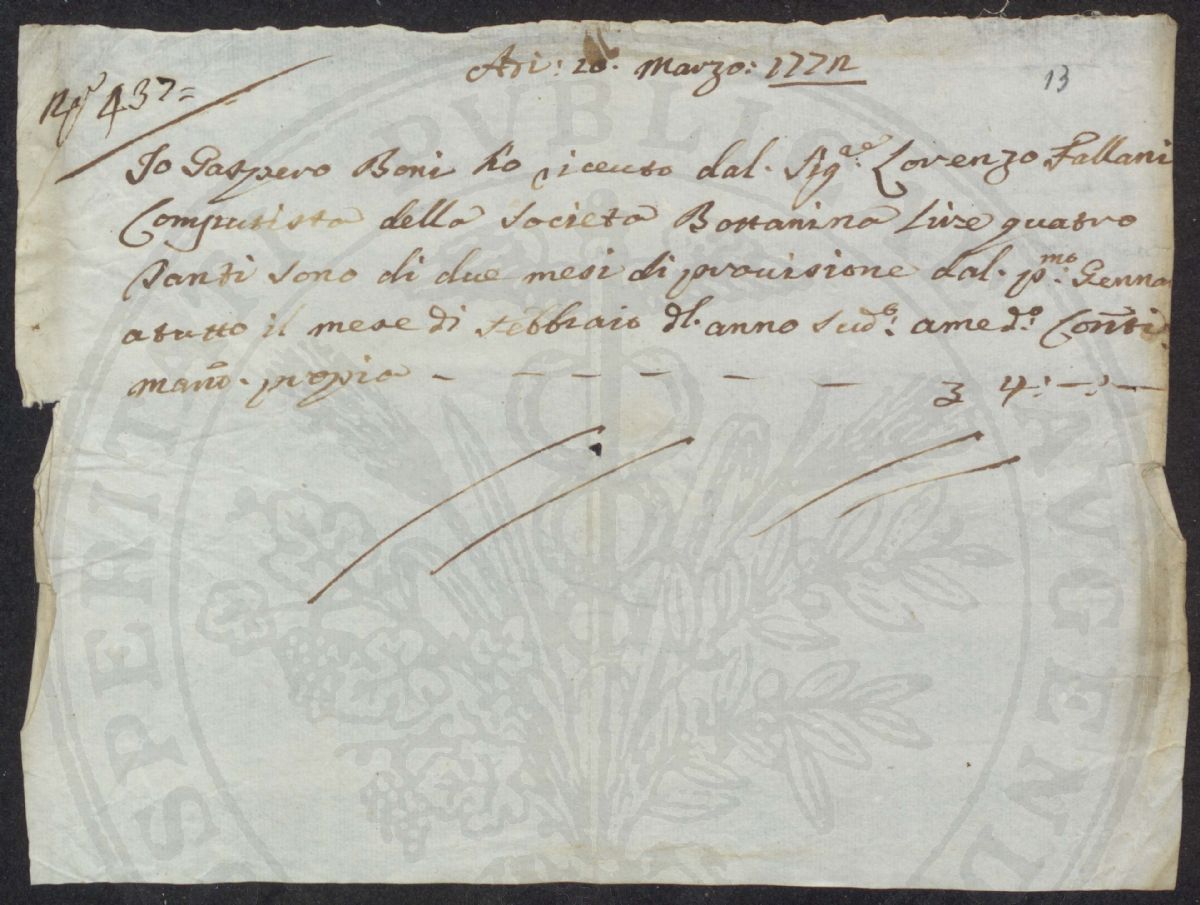 Adi: 20. Marzo: 1772
13
No. 437=
Io Gaspero Boni ho riceuto dal. Sigre. Lorenzo Fallani
Computista della Societa Bottanina Lire quatro
tanti sono di due mesi di prouisione dal. pmo: Genna
atutto il mese di Febbraio dl. anno Sudo: ame do: Conti
mano. propia — — — — — — 3 4: —: —
SPERITATI PUBLICAE AUGEN